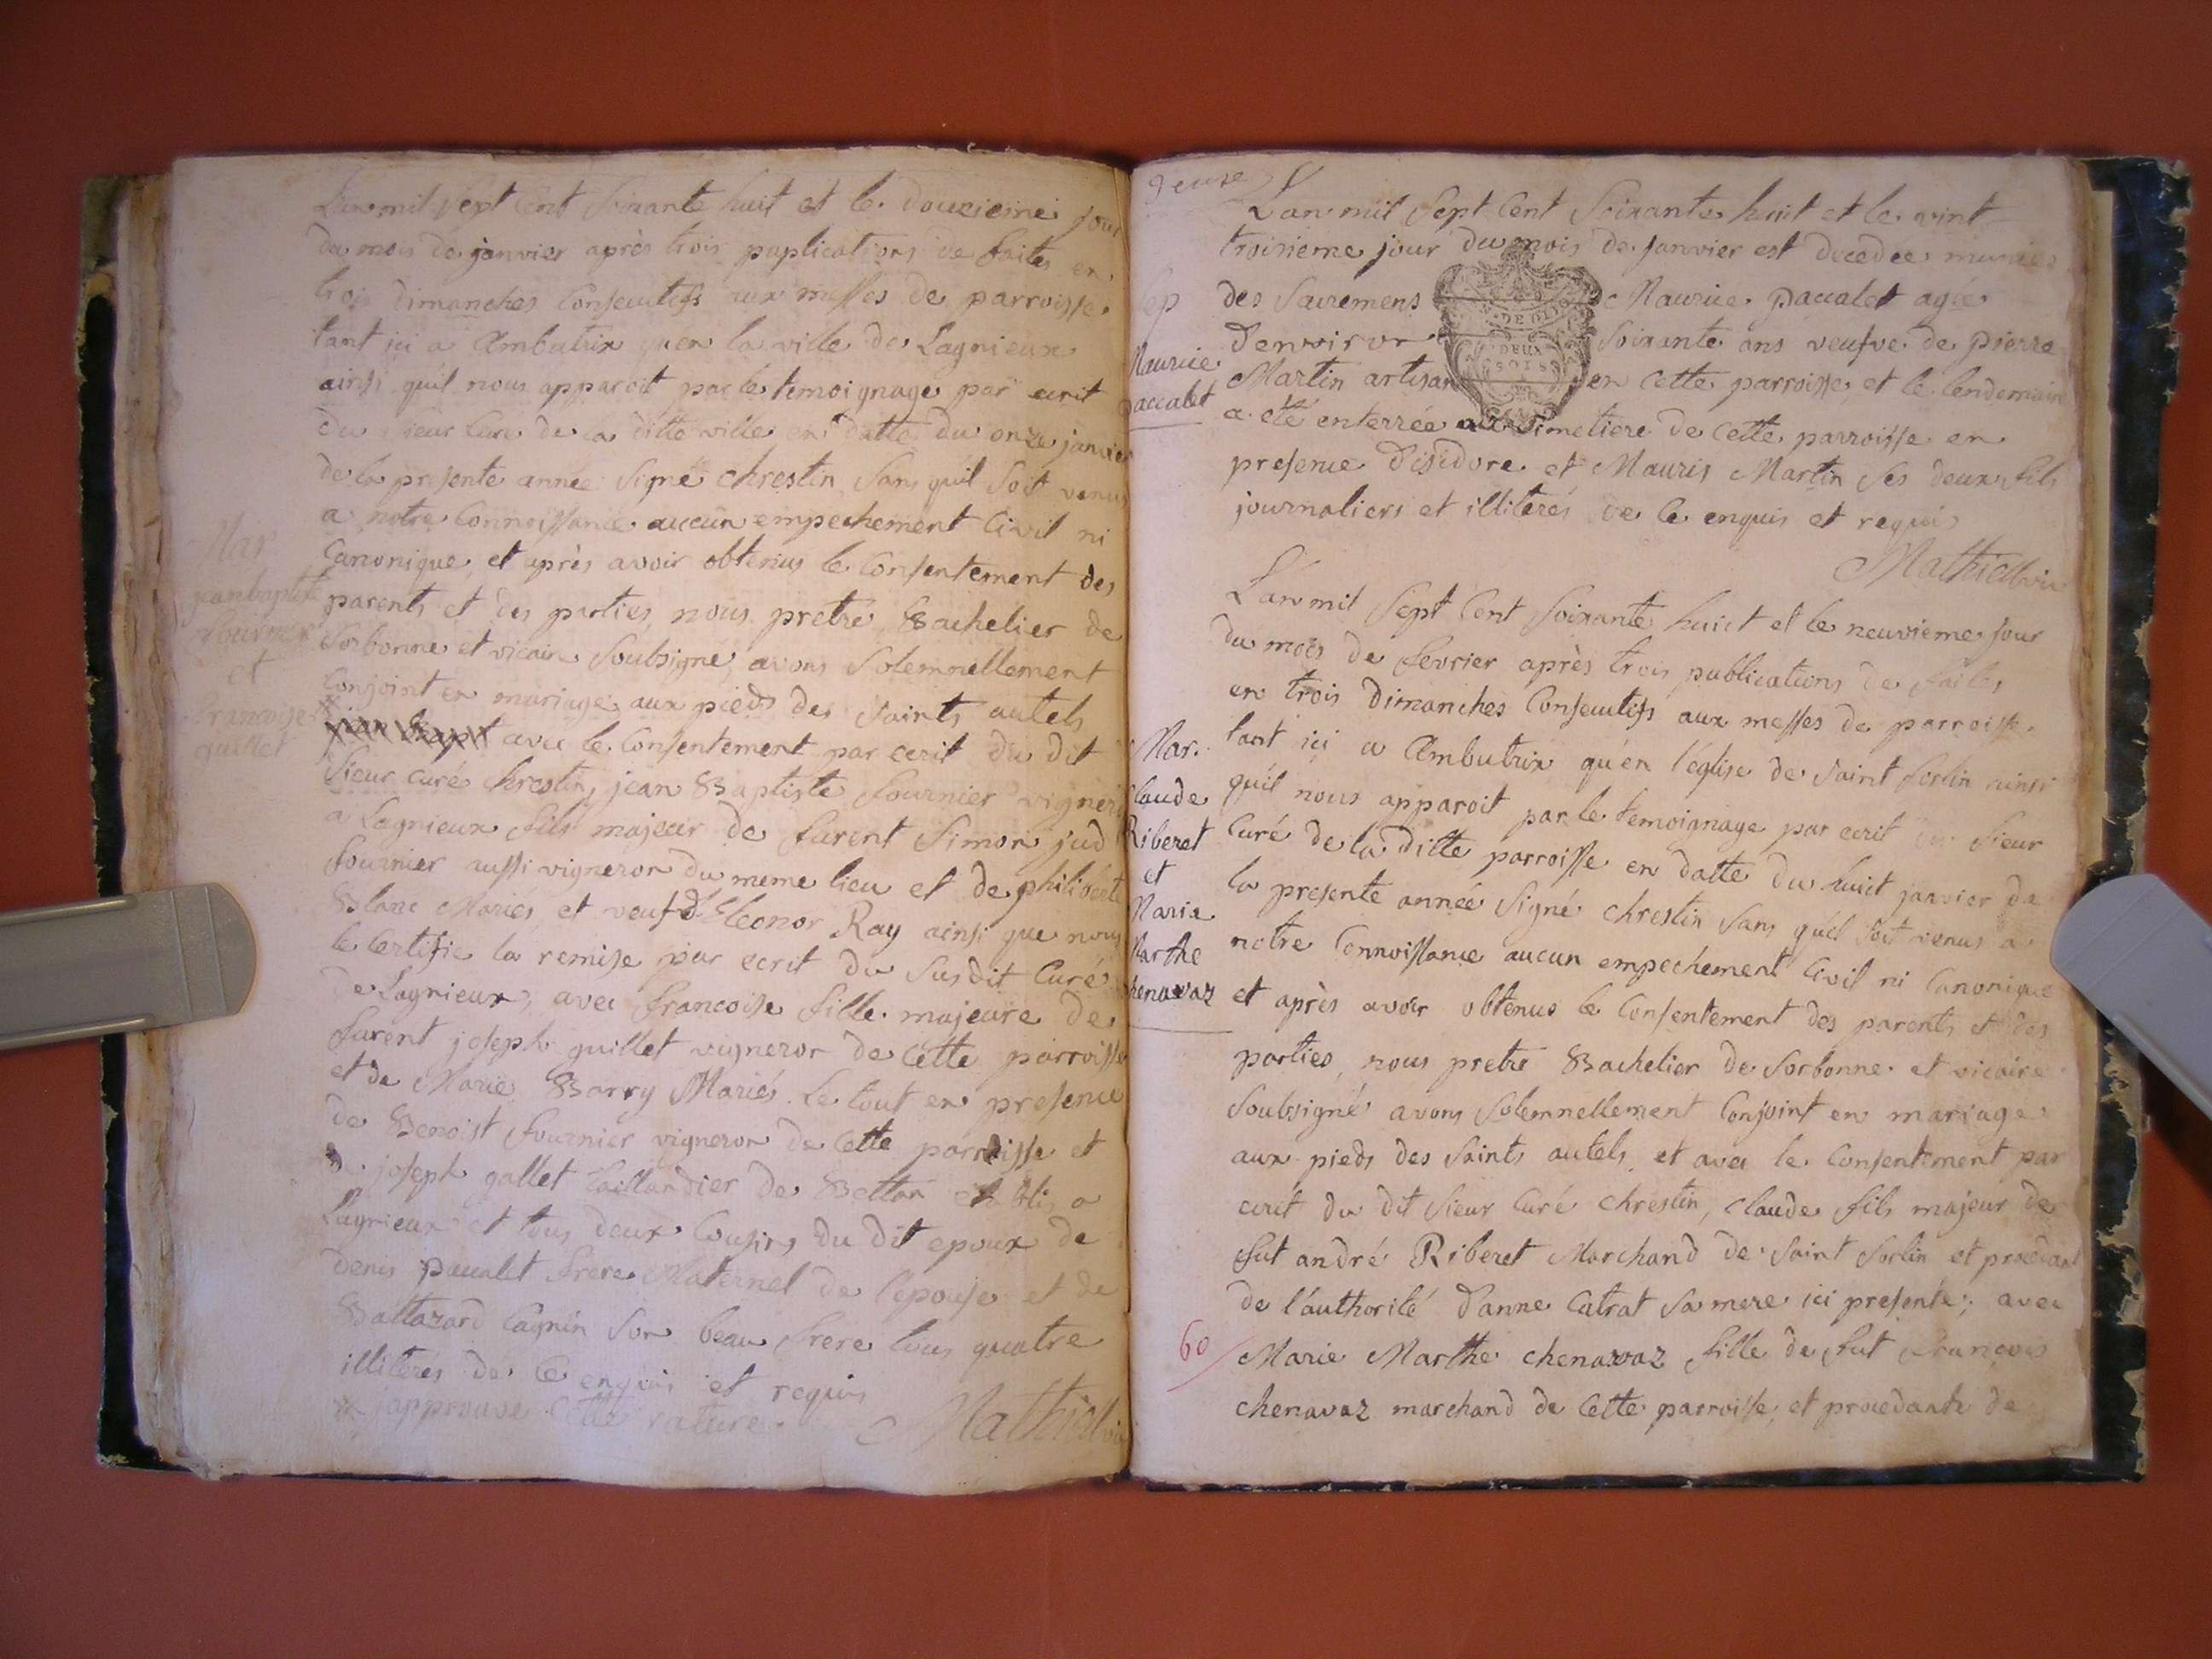 L'an mil sept cent soixante huit et le douzieme jour
du mois de janvier après trois puplications de faites en
trois dimanches consecutifs aux messes de parroisse
tant ici a Ambutrix qu'en la ville de Lagnieux
ainsi qu'il nous apparoit par le temoignage par ecrit
du sieur curé de la ditte ville en datte du onze janvier
de la presente année signé chrestin sans qu'il soit venus
a notre connoissance aucun empechement civil ni
canonique, et après avoir obtenus le consentement des
parents et des parties, nous pretre, Bachelier de
Sorbonne et vicaire soubsigné, avons solemnellement
conjoint en mariage aux pieds des saints autels
jean Bapt avec le consentement par ecrit du dit
sieur curé chrestin, jean Baptiste fournier vigneron
a Lagnieux fils majeur de furent Simon jud
fournier aussi vigneron du meme lieu et de philiberte
Blanc Mariés, et veuf d'Eleonor Ray ainsi que nous
le certifie la remise par ecrit du susdit curé
de Lagnieux, avec francoise fille majeure de
furent joseph quillet vigneron de cette parroisse
et de Marie Barry Mariés. Le tout en presence
de Benoist fournier vigneron de cette parroisse et
de joseph gallet taillandier de Bettan etablis a
Lagnieux et tous deux cousins du dit epoux de
denis paccalet frere Maternel de l'epouse et de
Baltazard Cagnin son beau frere tous quatre
illiterés de ce enquis et requis
j'approuve cette rature. Mathieu vic
Mar
jean baptiste
fournier
et
francoise
quillet
L'an mil sept cent soixante huit et le vint
troisieme jour du mois de janvier est decedee munies
des sacremens Maurice paccalet agée
d'environ soixante ans veufve de pierre
Martin artisan en cette parroisse, et le lendemain
a eté enterrée au simetiere de cette parroisse en
presence d'isidore et Mauris Martin ses deux fils
journaliers et illiterés de ce enquis et requis
Mathieu vic
DEUX
SOLS
Sep
Maurice
paccalet
L'an mil sept cent soixante huict et le neuvieme jour
du mois de fevrier après trois publications de faites
en trois dimanches consecutifs aux messes de parroisse
tant ici a Ambutrix qu'en l'église de saint sorlin ainsi
qu'il nous apparoit par le temoignage par ecrit du sieur
curé de la ditte parroisse en datte du huict janvier de
la presente année signé chrestin sans qu'il soit venus a
notre connoissance aucun empechement civil ni canonique
et après avoir obtenus le consentement des parents et des
parties, nous pretre Bachelier de Sorbonne et vicaire
soubsigné avons solemnellement conjoint en mariage
aux pieds des saints autels, et avec le consentement par
ecrit du dit sieur curé chrestin, claude fils majeur de
fut andré Riberet Marchand de saint sorlin et procedant
de l'authorité d'anne Catrat sa mere ici presente; avec
Marie Marthe chenavaz fille de fut françois
chenavaz marchand de cette parroisse, et procedante de
Mar.
claude
Riberet
et
Marie
Marthe
chenavaz
60